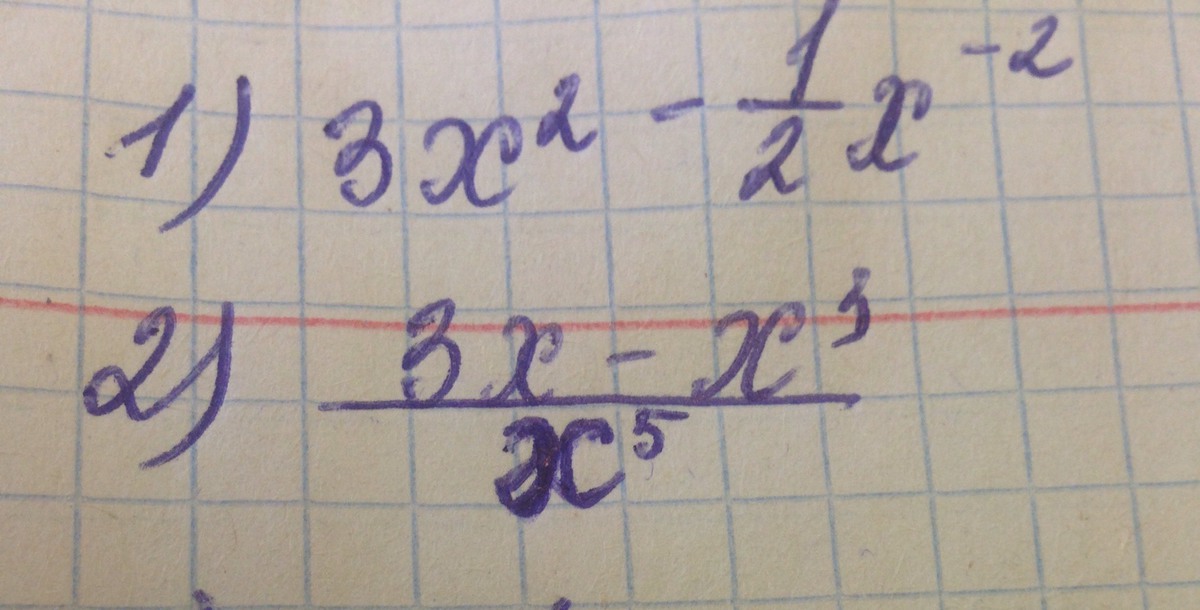 1) 3x² - 1/2 x⁻²
2) (3x - x³)/x⁵